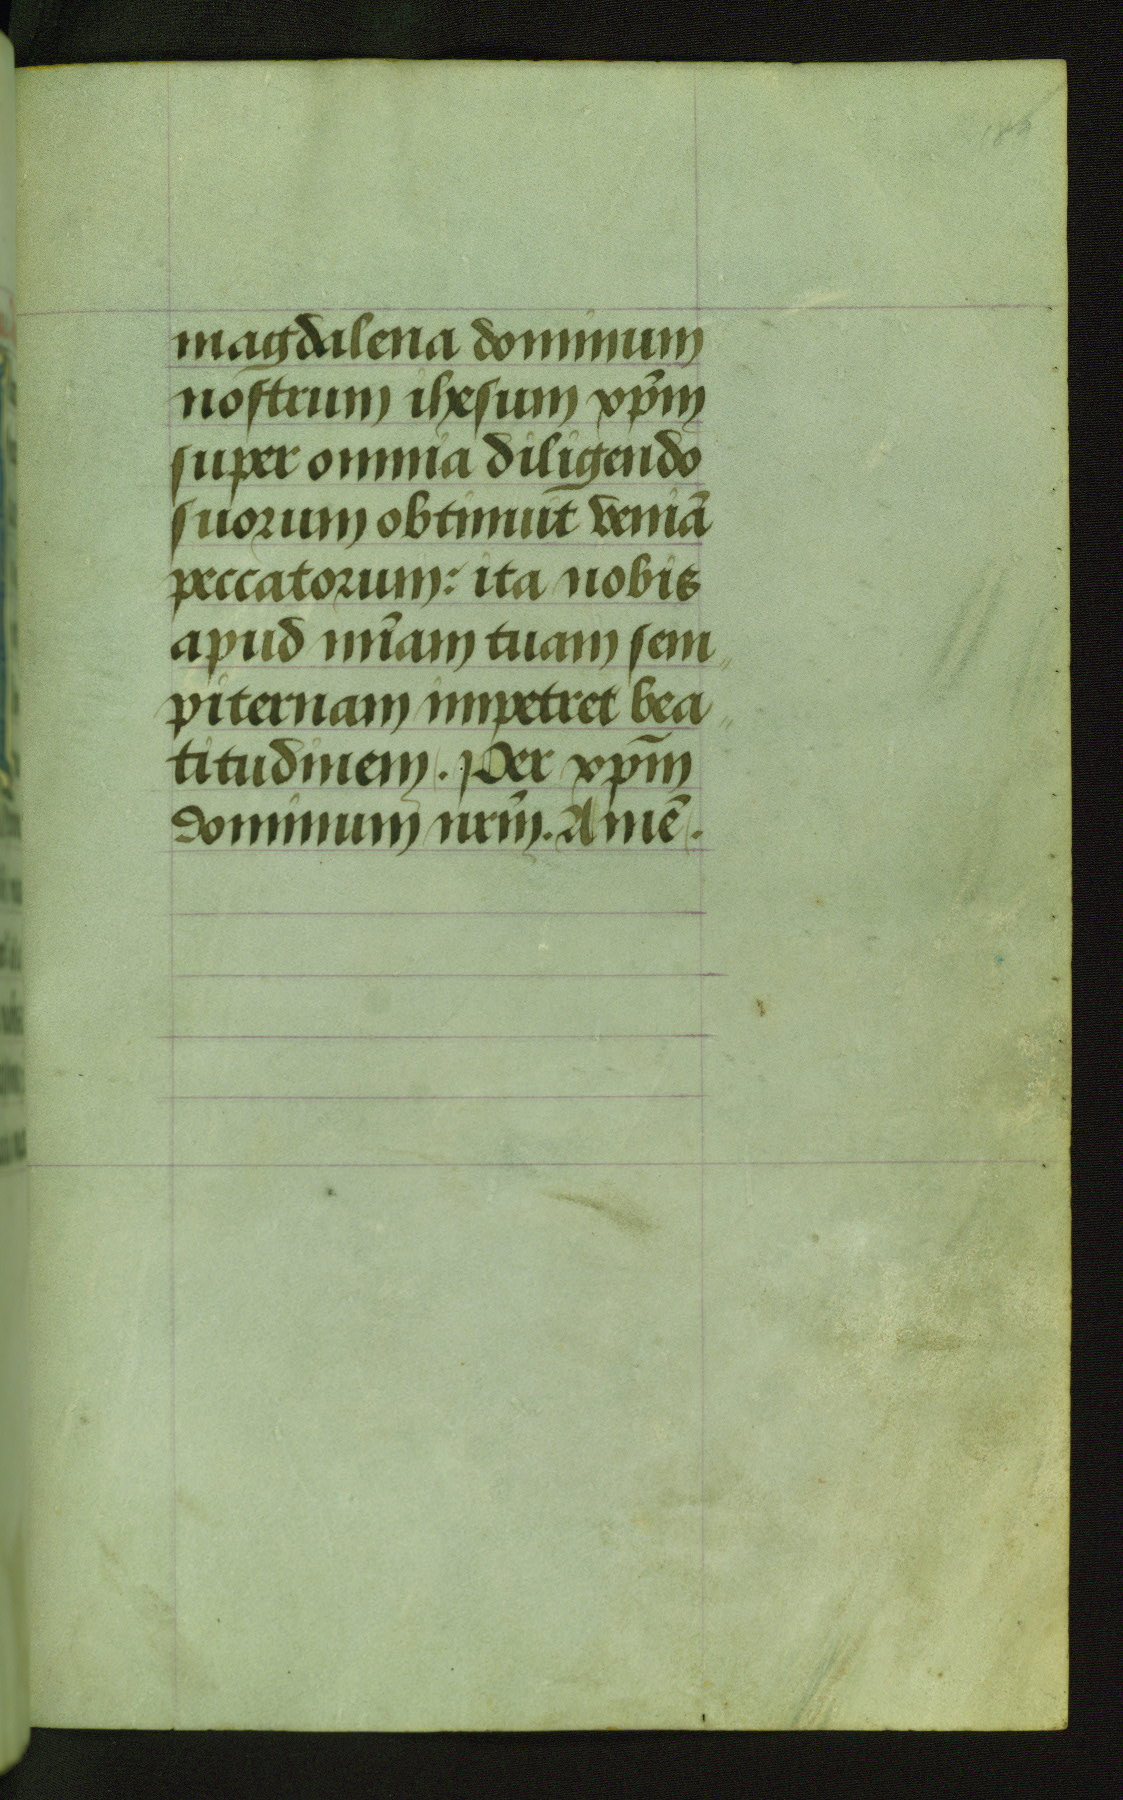 magdalena dominum
nostrum ihesum xp̄m
super omnia diligendo
suorum obtinuit veniā
peccatorum: ita nobis
apud mīam tuam sem„
piternam impetret bea„
titudinem. Per xp̄m
dominum nrm̄. Amē.